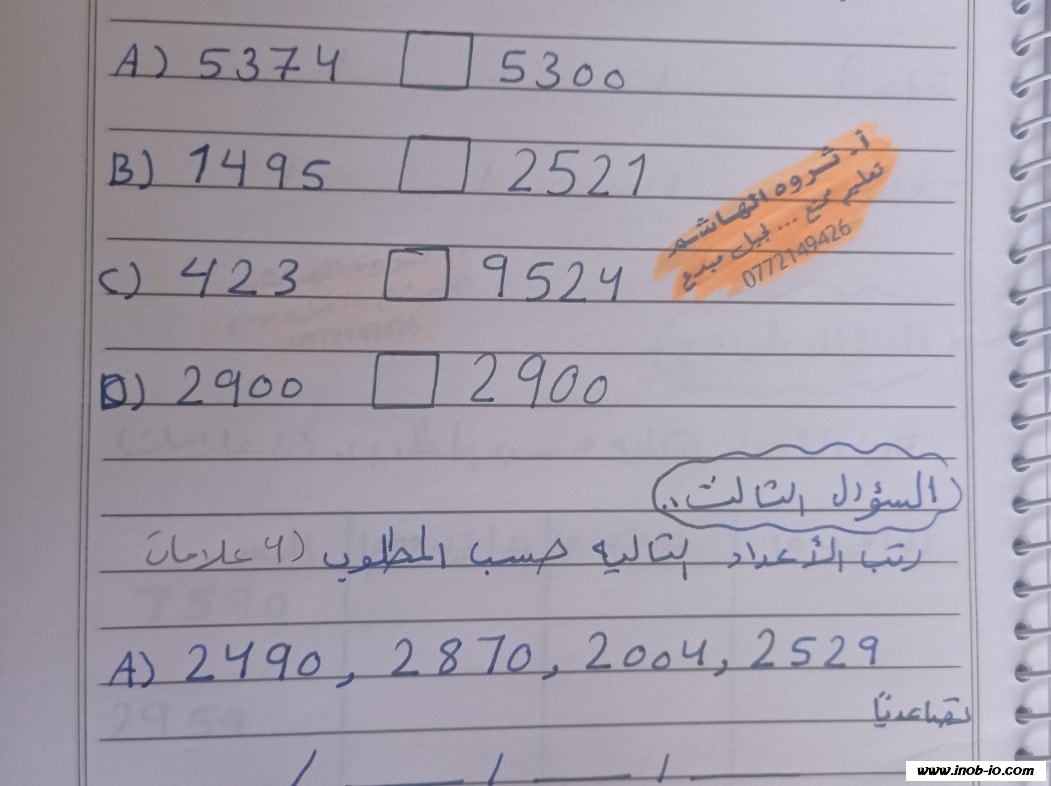 A) 5374 □ 5300
B) 1495 □ 2521
أ. ثروه الهاشم
تعليم متع ... لجيل مبدع
0772149426
C) 423 □ 9524
D) 2900 □ 2900
السؤال الثالث..
رتب الأعداد التاليه حسب المطلوب (4 علامات
A) 2490, 2870, 2004, 2529
تصاعديًا
www.inob-io.com